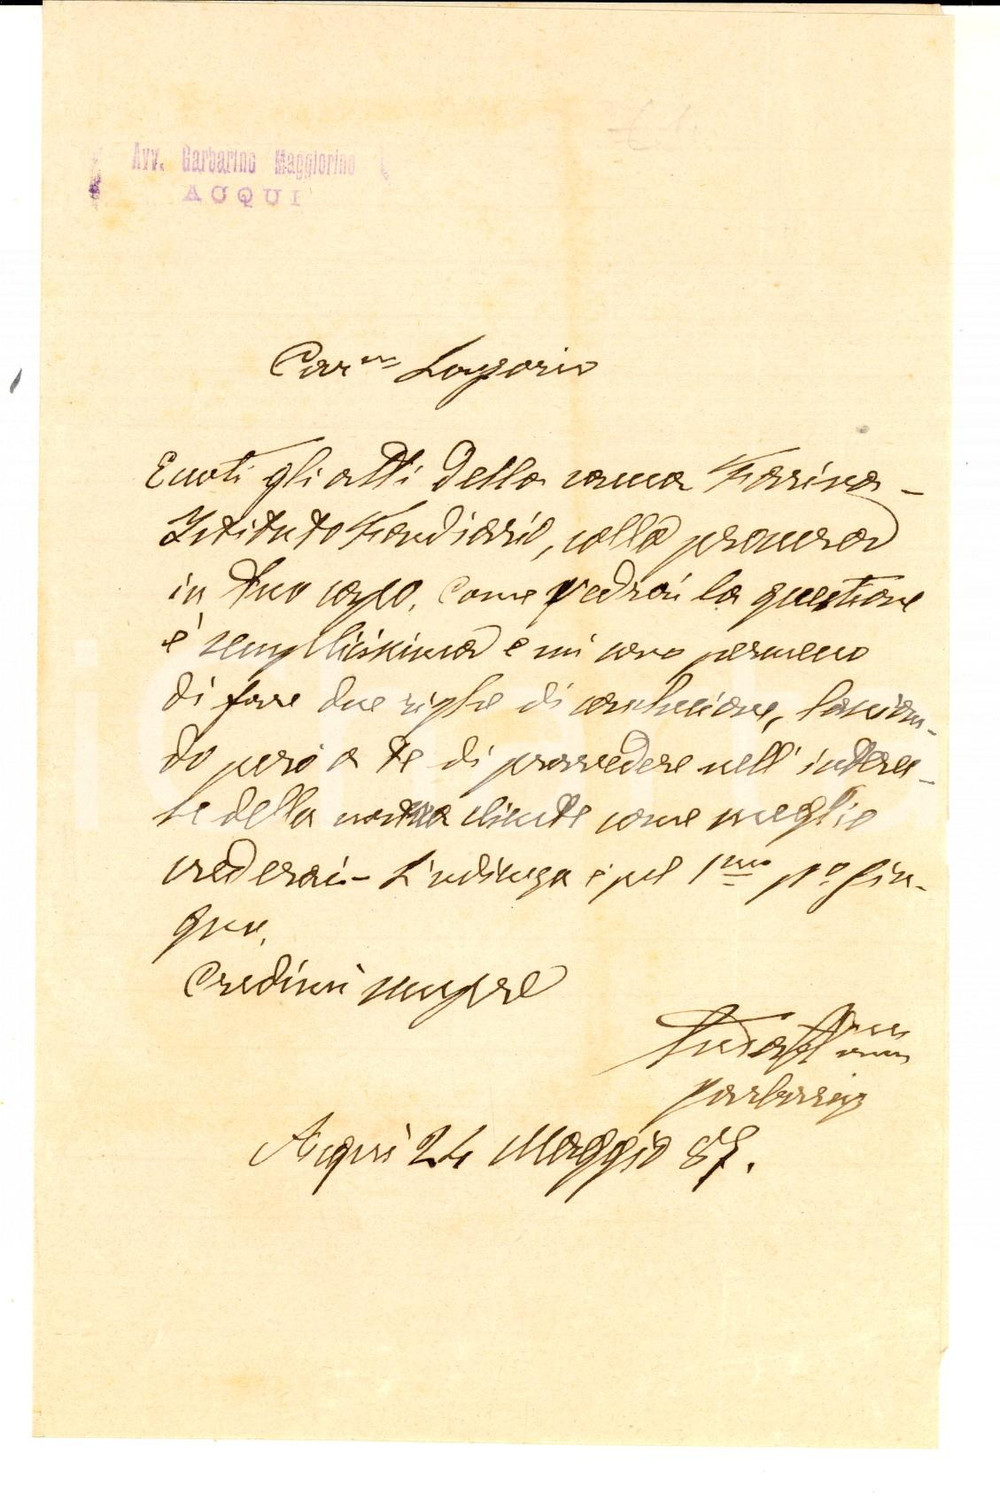 Avv. Garbarino Maggiorino
ACQUI
Car.mo
Eccoti gli atti della causa Farina -
Istituto Fondiario, colla procura
in tuo capo. Come vedrai la questione
è semplicissima e mi sono permesso
di fare due righe di conclusione, lascian-
do però a te di provvedere nell'interes-
se della nostra cliente come meglio
crederai - L'udienza è pel 1mo po. giu-
gno.
Credimi sempre
Garbarino
Acqui 24 Maggio 87.